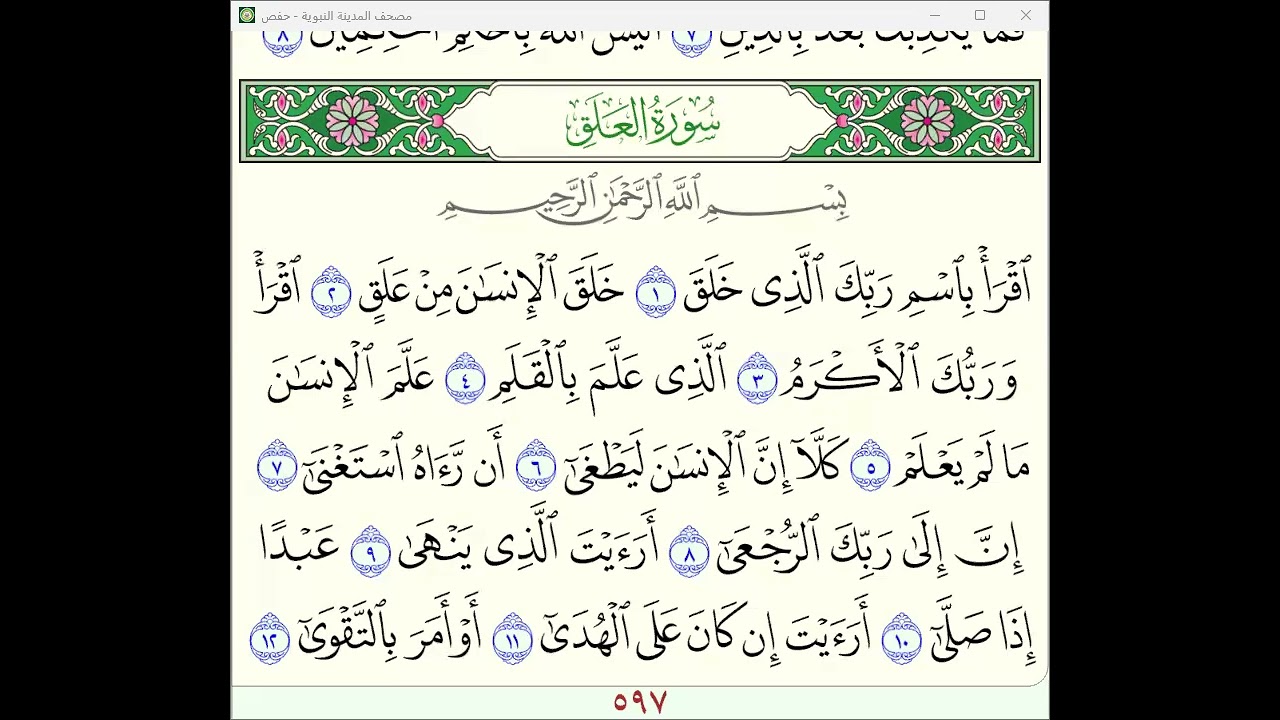 مصحف المدينة النبوية - حفص
فَمَا يُكَذِّبُكَ بَعْدُ بِالدِّينِ ٧ أَلَيْسَ اللَّهُ بِأَحْكَمِ الْحَاكِمِينَ ٨
سُورَةُ العَلَقِ
بِسْمِ ٱللَّهِ ٱلرَّحْمَٰنِ ٱلرَّحِيمِ
ٱقْرَأْ بِٱسْمِ رَبِّكَ ٱلَّذِى خَلَقَ ١ خَلَقَ ٱلْإِنسَٰنَ مِنْ عَلَقٍ ٢ ٱقْرَأْ
وَرَبُّكَ ٱلْأَكْرَمُ ٣ ٱلَّذِى عَلَّمَ بِٱلْقَلَمِ ٤ عَلَّمَ ٱلْإِنسَٰنَ
مَا لَمْ يَعْلَمْ ٥ كَلَّآ إِنَّ ٱلْإِنسَٰنَ لَيَطْغَىٰٓ ٦ أَن رَّءَاهُ ٱسْتَغْنَىٰٓ ٧
إِنَّ إِلَىٰ رَبِّكَ ٱلرُّجْعَىٰٓ ٨ أَرَءَيْتَ ٱلَّذِى يَنْهَىٰ ٩ عَبْدًا
إِذَا صَلَّىٰٓ ١٠ أَرَءَيْتَ إِن كَانَ عَلَى ٱلْهُدَىٰٓ ١١ أَوْ أَمَرَ بِٱلتَّقْوَىٰٓ ١٢
٥٩٧